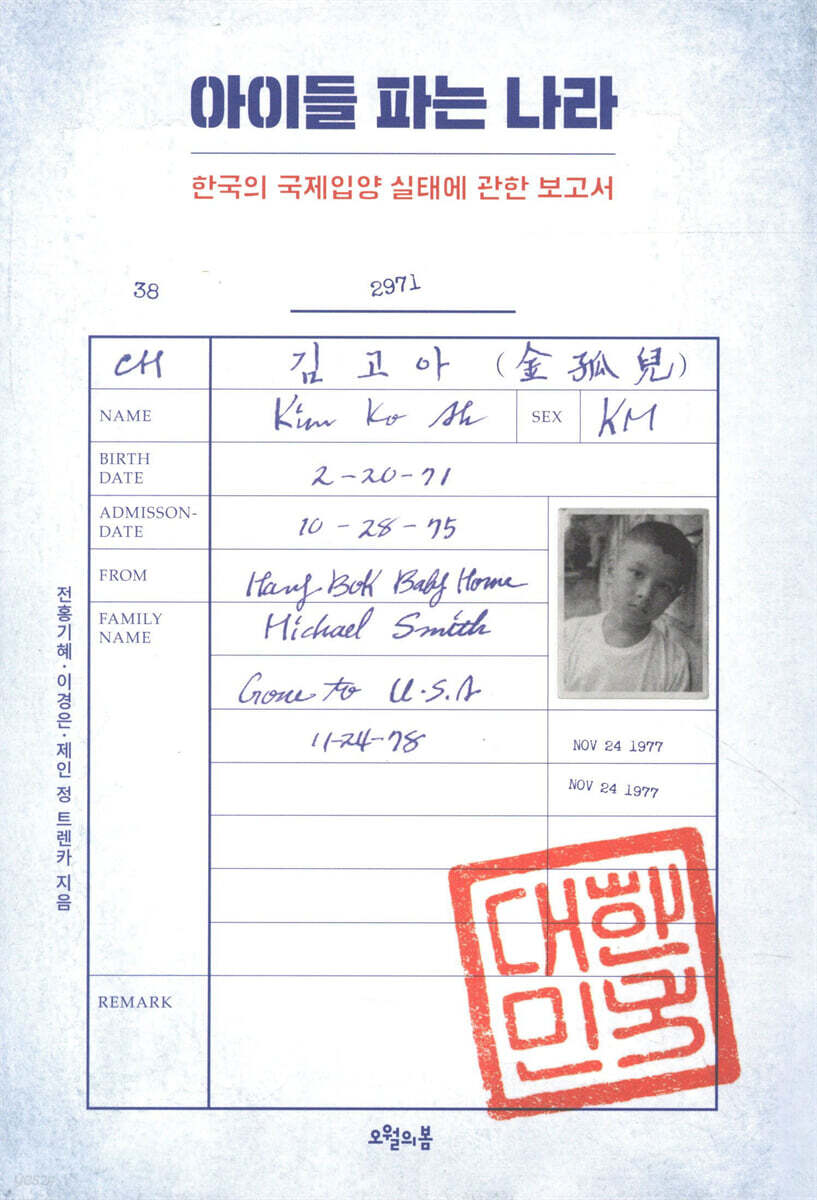 아이들 파는 나라
한국의 국제입양 실태에 관한 보고서
38
2971
CH
김 고 아 (金 孤 兒)
NAME
Kim Ko Ah
SEX
KM
BIRTH DATE
2-20-71
ADMISSON-DATE
10-28-75
FROM
Hang Bok Baby Home
FAMILY NAME
Michael Smith
Gone to U.S.A
11-24-78
NOV 24 1977
NOV 24 1977
REMARK
대한
민국
전홍기혜·이경은·제인 정 트렌카 지음
오월의봄